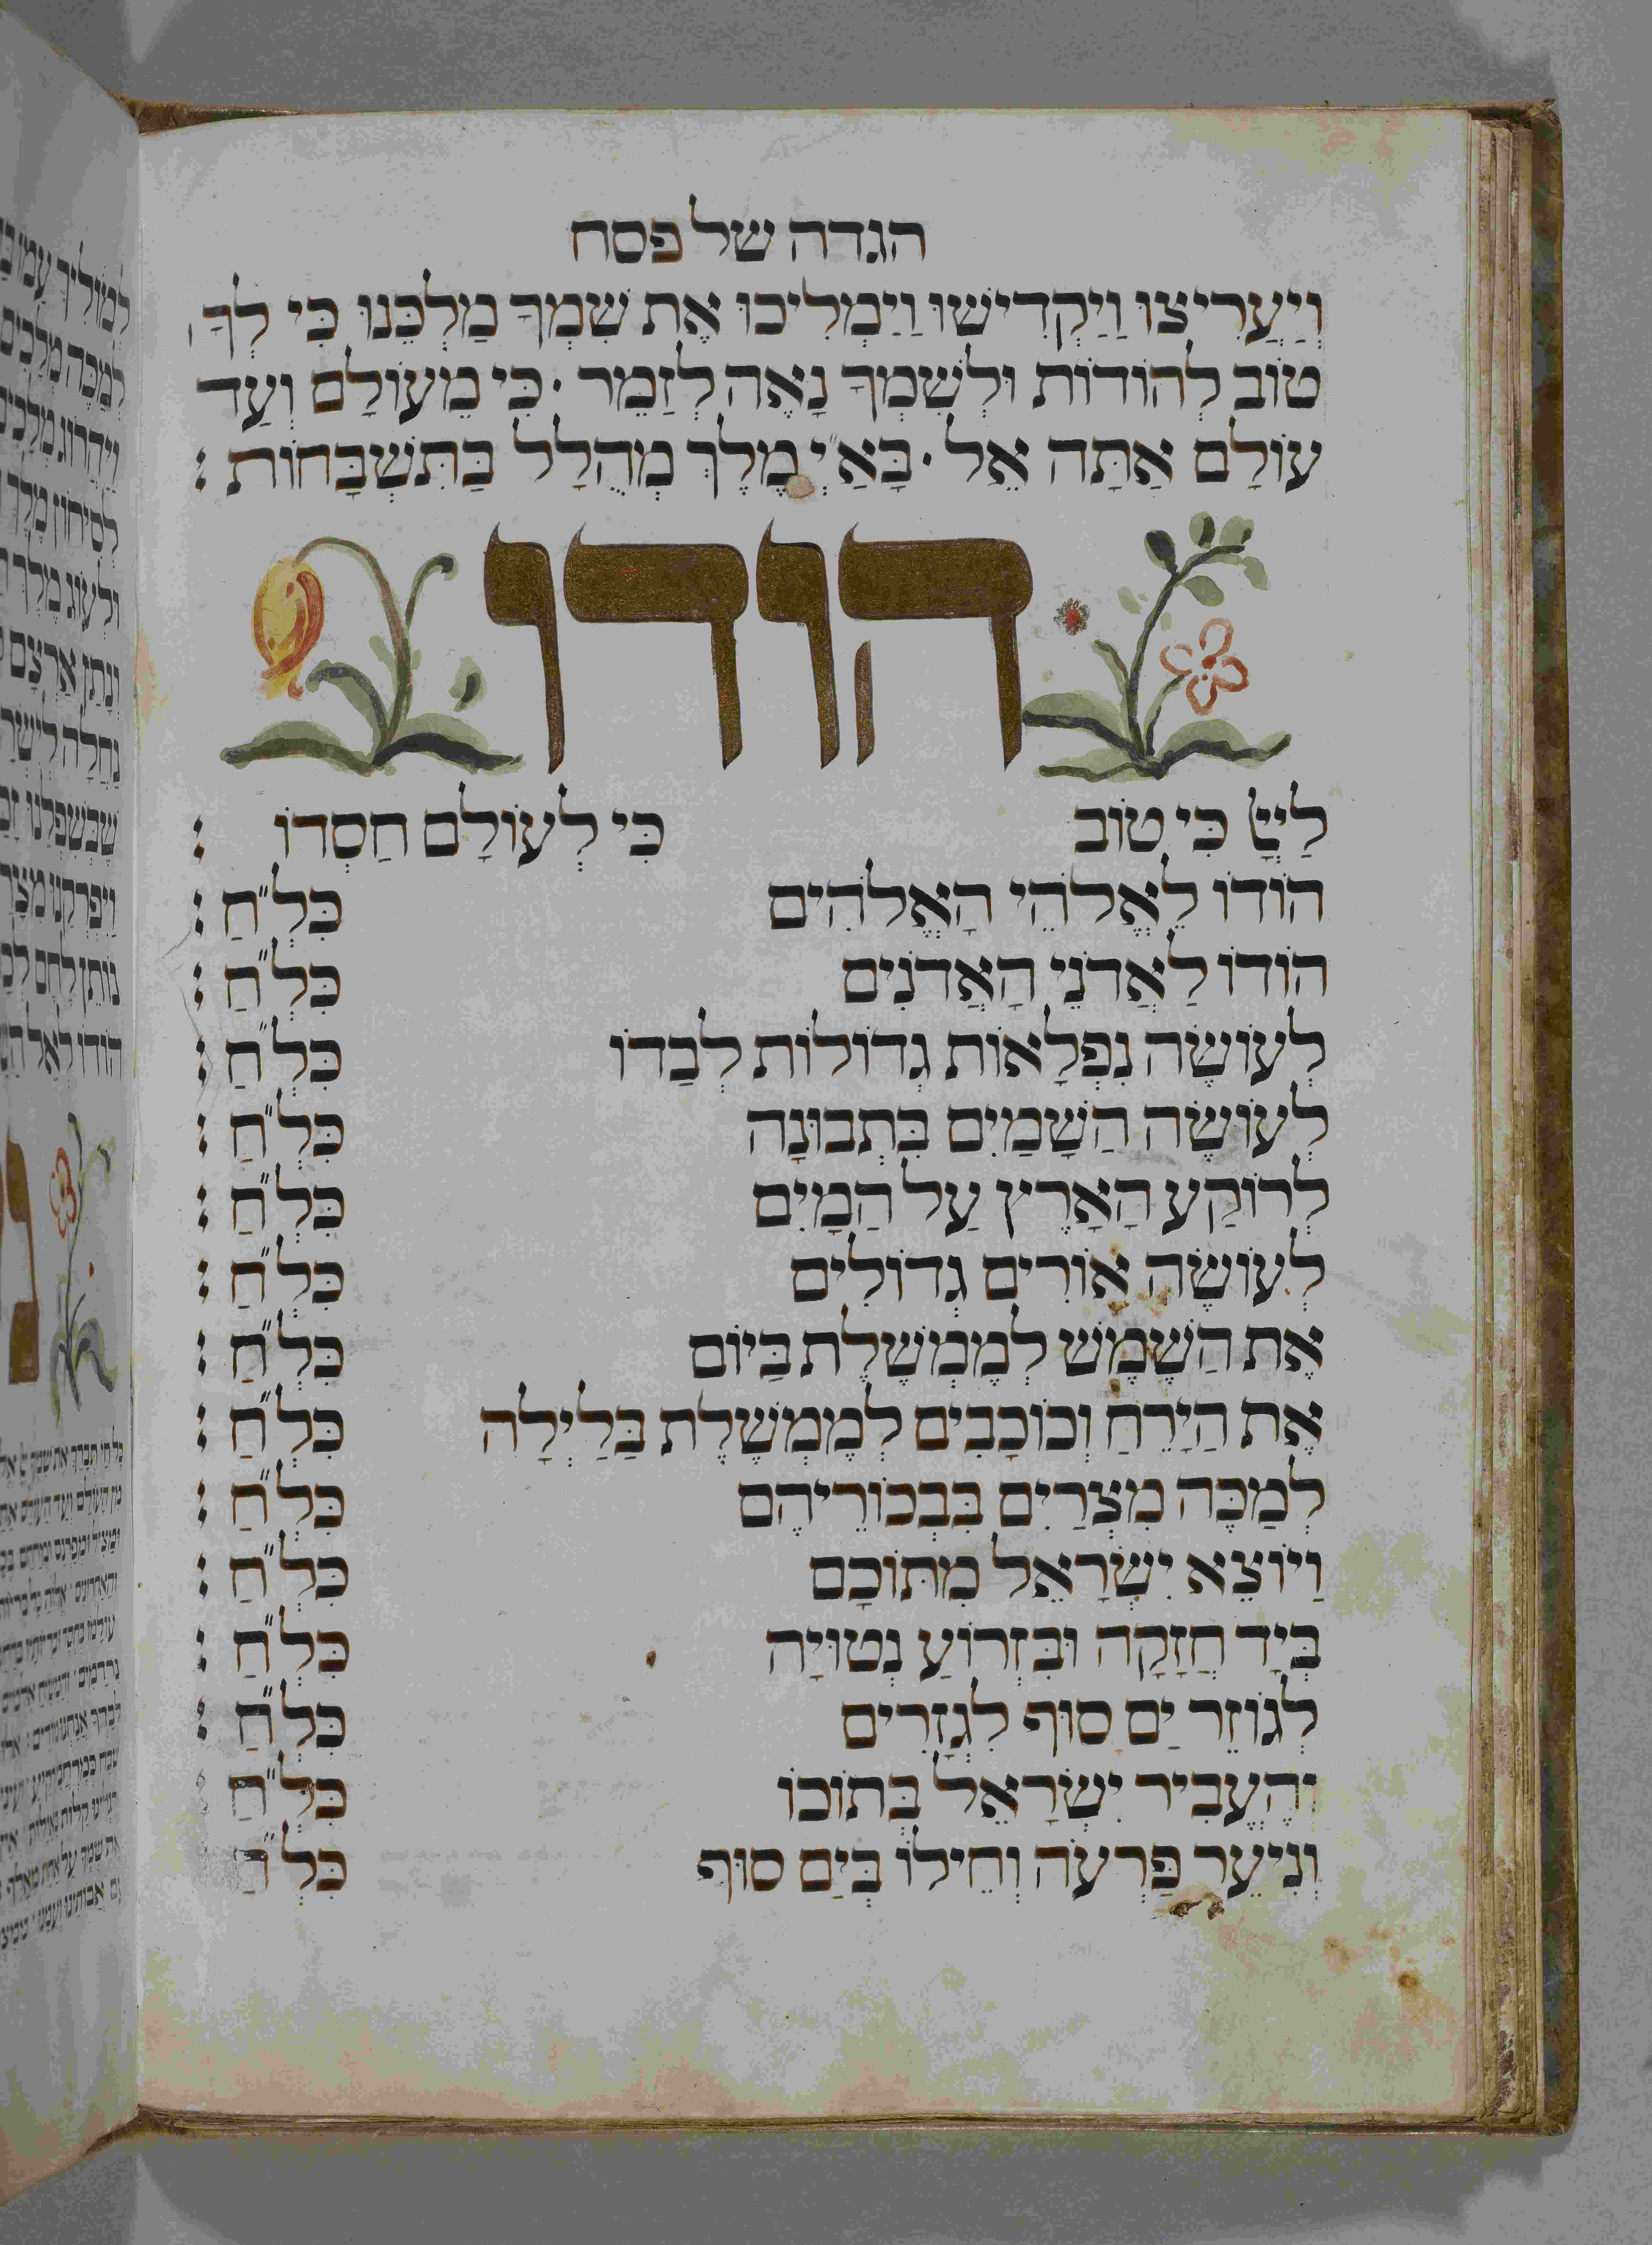 הגדה של פסח
וְיַעֲרִיצוּ וַיַקְדִישׁוּ וַיַמְלִיכוּ אֶת שִׁמְךָ מַלְכֵּנוּ כִּי לְךָ
טוֹב לְהוֹדוֹת וּלְשִׁמְךָ נָאֶה לְזַמֵר · כִּי מֵעוֹלָם וְעַד
עוֹלָם אַתָּה אֵל · בָּאַ״יְ מֶלֶךְ מְהֻלָל בַּתִּשְׁבָּחוֹת :
הודו
לַיְיָ כִּי טוֹב כִּי לְעוֹלָם חַסְדוֹ :
הוֹדוּ לֵאֱלֹהֵי הָאֱלֹהִים כִּלְ״חַ :
הוֹדוּ לַאֲדֹנֵי הָאֲדֹנִים כִּלְ״חַ :
לְעוֹשֶׂה נִפְלָאוֹת גְדוֹלוֹת לְבַדוֹ כִּלְ״חַ :
לְעוֹשֶׂה הַשָׁמַיִם בִּתְבוּנָה כִּלְ״חַ :
לְרוֹקַע הָאָרֶץ עַל הַמָיִם כִּלְ״חַ :
לְעוֹשֶׂה אוֹרִים גְדוֹלִים כִּלְ״חַ :
אֶת הַשֶׁמֶשׁ לְמֶמְשֶׁלֶת בַּיוֹם כִּלְ״חַ :
אֶת הַיָרֵחַ וְכוֹכָבִים לְמֶמְשֶׁלֶת בַּלַיְלָה כִּלְ״חַ :
לְמַכֶּה מִצְרַיִם בִּבְכוֹרֵיהֶם כִּלְ״חַ :
וַיוֹצֵא יִשְׂרָאֵל מִתּוֹכָם כִּלְ״חַ :
בְּיָד חֲזָקָה וּבִזְרוֹעַ נְטוּיָה כִּלְ״חַ :
לְגוֹזֵר יַם סוּף לִגְזָרִים כִּלְ״חַ :
וְהֶעֱבִיר יִשְׂרָאֵל בְּתוֹכוֹ כִּלְ״חַ
וְנִיעֵר פַּרְעֹה וְחֵילוֹ בְּיַם סוּף כִּלְ״חַ